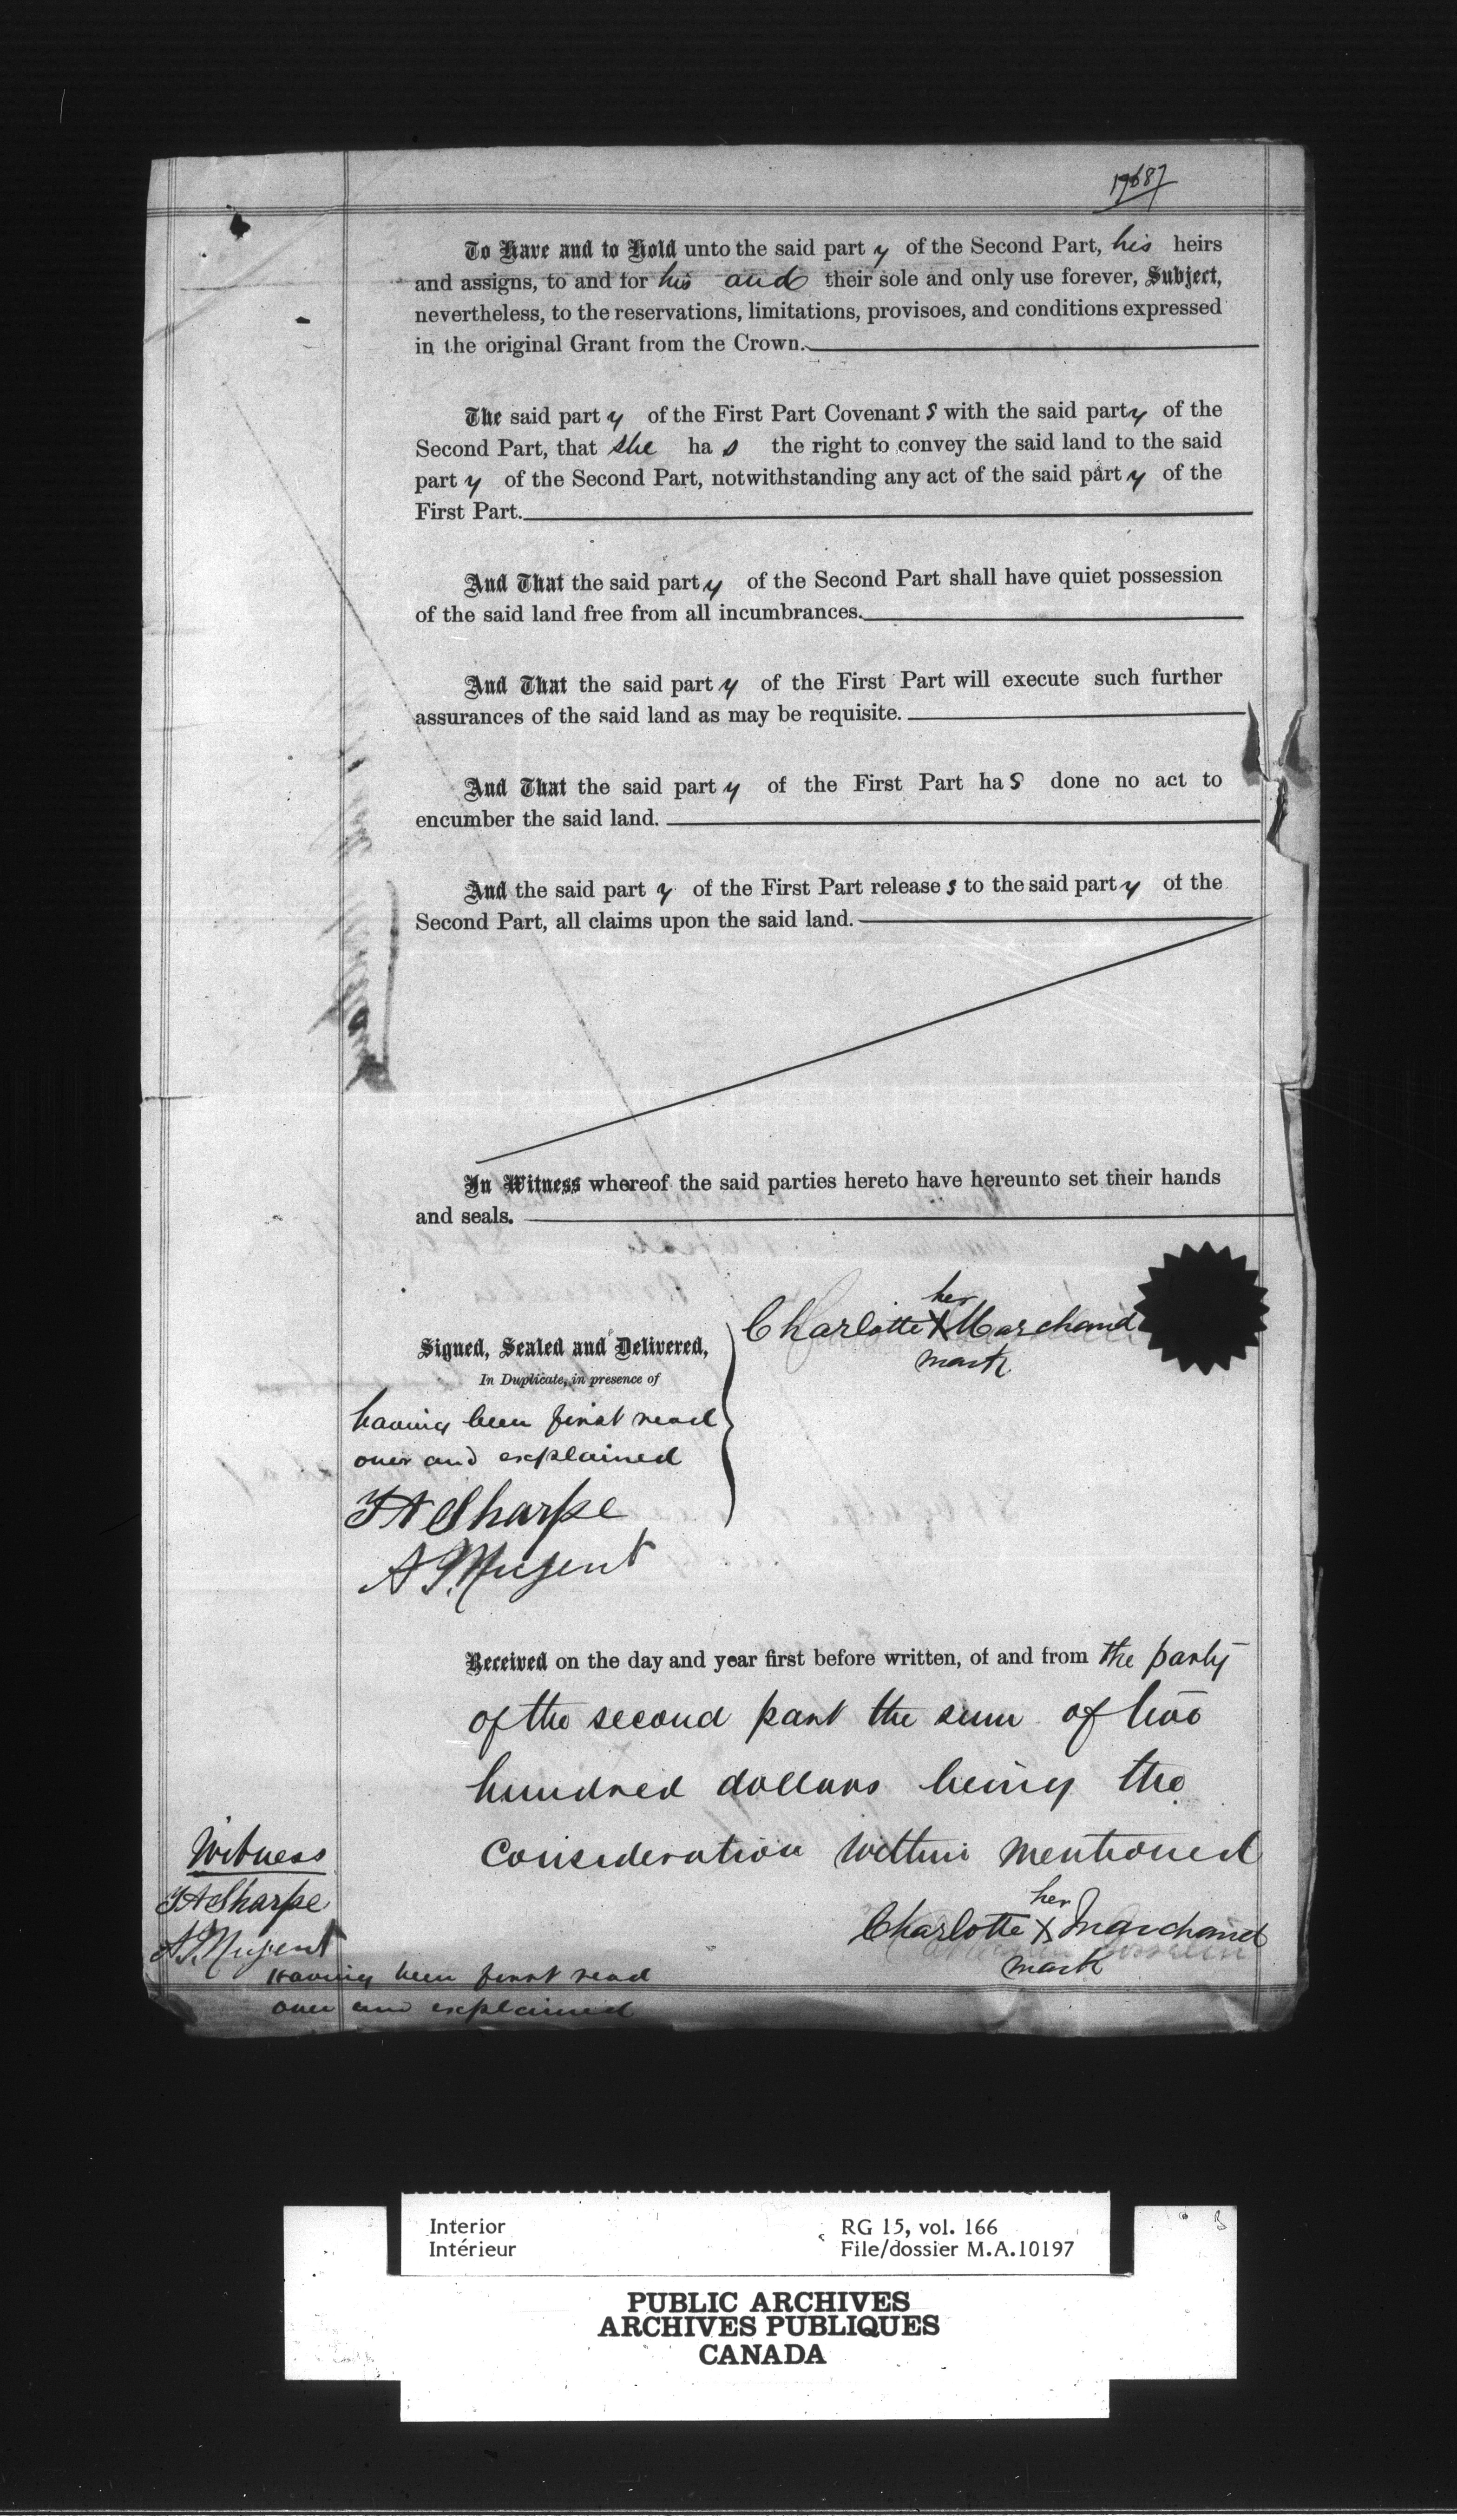 To Have and to Hold unto the said party of the Second Part, his heirs
and assigns, to and for his and their sole and only use forever, Subject,
nevertheless, to the reservations, limitations, provisoes, and conditions expressed
in the original Grant from the Crown.
The said party of the First Part Covenants with the said party of the
Second Part, that she has the right to convey the said land to the said
party of the Second Part, notwithstanding any act of the said party of the
First Part.
And That the said party of the Second Part shall have quiet possession
of the said land free from all incumbrances.
And That the said party of the First Part will execute such further
assurances of the said land as may be requisite.
And That the said party of the First Part has done no act to
encumber the said land.
And the said party of the First Part releases to the said party of the
Second Part, all claims upon the said land.
In Witness whereof the said parties hereto have hereunto set their hands
and seals.
her
Charlotte X Marchand
mark
Signed, Sealed and Delivered,
In Duplicate, in presence of
having been first read
over and explained
T A Sharpe
A. J. Nugent
Received on the day and year first before written, of and from the party
of the second part the sum of two
hundred dollars being the
consideration within mentioned
her
Charlotte X Marchand
mark
Witness
T A Sharpe
A. J. Nugent
Having been first read
over and explained
Interior
Intérieur
RG 15, vol. 166
File/dossier M.A.10197
PUBLIC ARCHIVES
ARCHIVES PUBLIQUES
CANADA